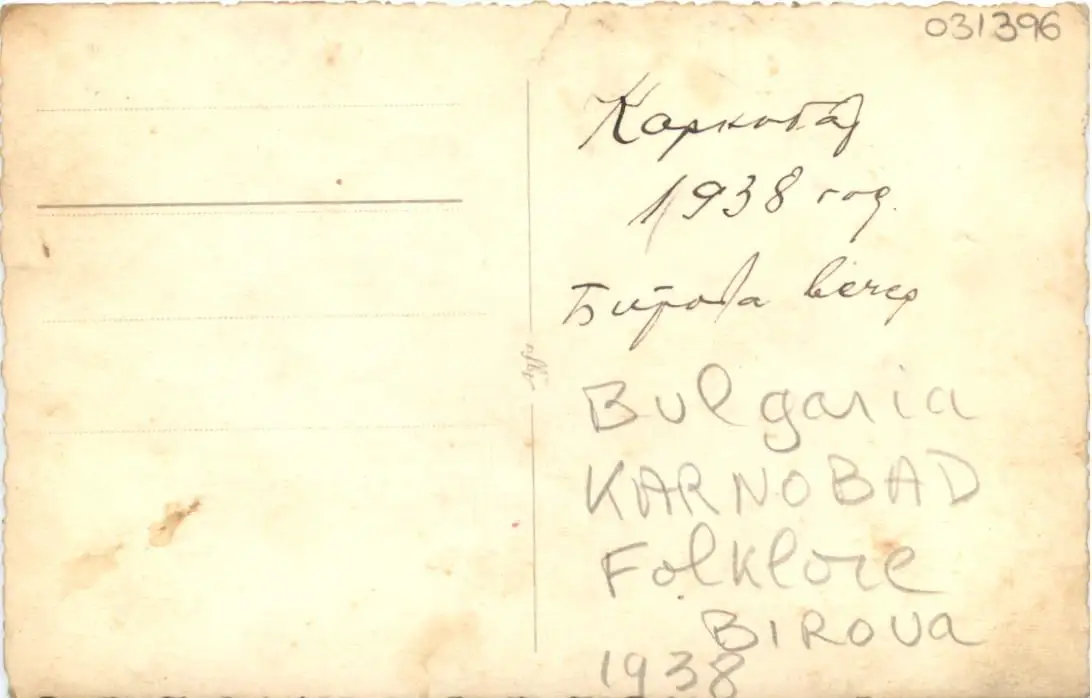 031396
Карнобад
1938 год.
Бирова вечер
Bulgaria
KARNOBAD
Folklore
BIROVA
1938